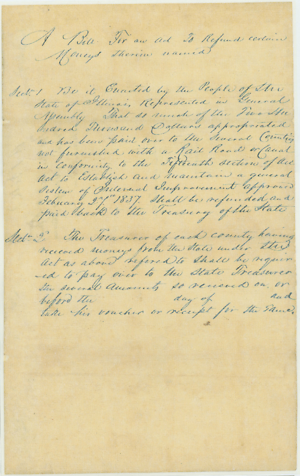 A Bill For an act To Refund certain
Moneys therein named
Sect. 1 Be it Enacted by the People of the
State of Illinois Represented in General
Assembly That so much of the Two Hun
dred Thousand Dollars appropriated
and has been paid over to the several Counties
not furnished with a Rail Road or Canal
in Conformity to the fifteenth section of the
Act to Establish and maintain a general
System of Internal Improvement approved
February 27th 1837 shall be refunded and
paid back to the Treasury of the State
Sect. 2 The Treasurer of each county having
received moneys from the State under the
Act as above refered to shall be requir
ed to pay over to the State Treasurer
the several Amounts so received on or
before the day of and
take his voucher or receipt for the same